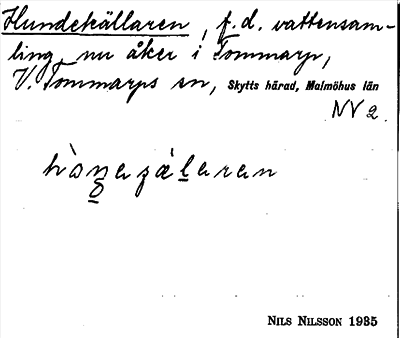 Hundekällaren, f. d. vattensam-
ling nu åker i Tommarp,
V. Tommarps sn, Skytts härad, Malmöhus län
NV 2.
NILS NILSSON 1935